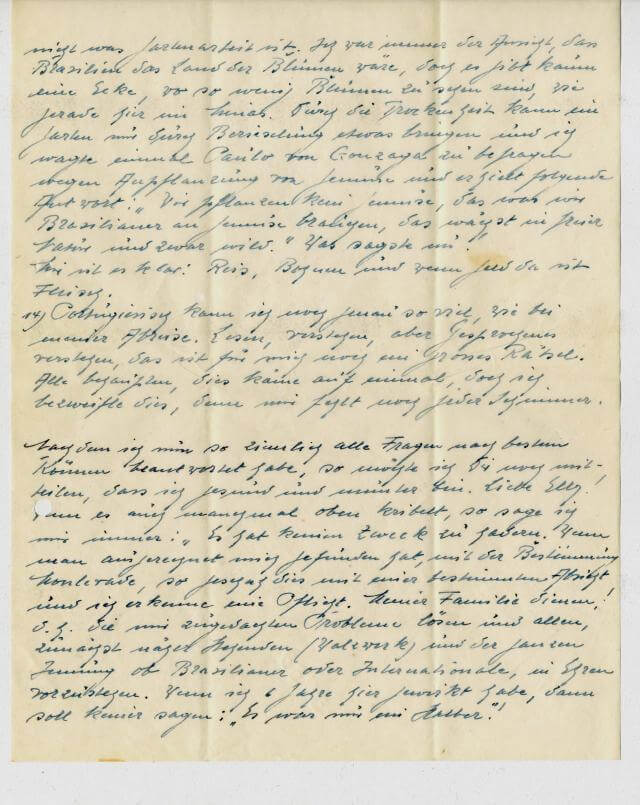 nicht was Gartenarbeit ist. Ich war immer der Ansicht, das
Brasilien das Land der Blumen wäre, doch es gibt kaum
eine Ecke, wo so wenig Blumen zu sehen sind, wie
gerade hier in Minas. Durch die Trockenheit kann ein
Garten nur durch Berieselung etwas bringen und ich
wagte einmal Paulo von Gonzaga zu befragen
wegen Anpflanzung von Gemüse und er hielt folgende
Antwort: „Wir pflanzen kein Gemüse, das was wir
Brasilianer an Gemüse brauchen, das wächst in freier
Natur und zwar wild." Was sagste nu!
Mir ist es klar: Reis, Bohnen und wenn Geld da ist
Fleisch.
14) Portugiesisch kann ich noch genau so viel, wie bei
meiner Abreise. Lesen, verstehen, aber Gesprochenes
verstehen, das ist für mich noch ein grosses Rätsel.
Alle behaupten, dies käme auf einmal, doch ich
bezweifle dies, denn mir fehlt noch jeder Schimmer.
Nachdem ich nun so ziemlich alle Fragen nach bestem
Können beantwortet habe, so möchte ich Dir noch mit-
teilen, dass ich gesund und munter bin. Liebe Elly!
wenn es auch manchmal oben kribelt, so sage ich
mir immer: „Es hat keinen Zweck zu hadern. Wenn
man ausgerechnet mich gefunden hat, mit der Bestimmung
Monlevade, so geschah dies mit einer bestimmten Absicht
und ich erkenne eine Pflicht. Meiner Familie dienen,
d. h. die mir zugedachten Probleme lösen und allen,
zunächst näher Stehenden (Walzwerk) und der ganzen
Innung ob Brasilianer oder Internationale, in Ehren
vorzustehen. Wenn ich 6 Jahre hier gewirkt habe, dann
soll keiner sagen: „Es war nur ein Halber"!